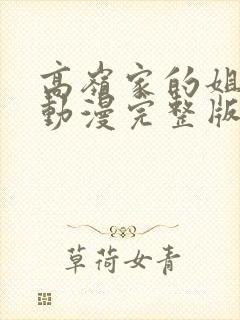 高嶺家的姐
動漫完整版
草荷女青